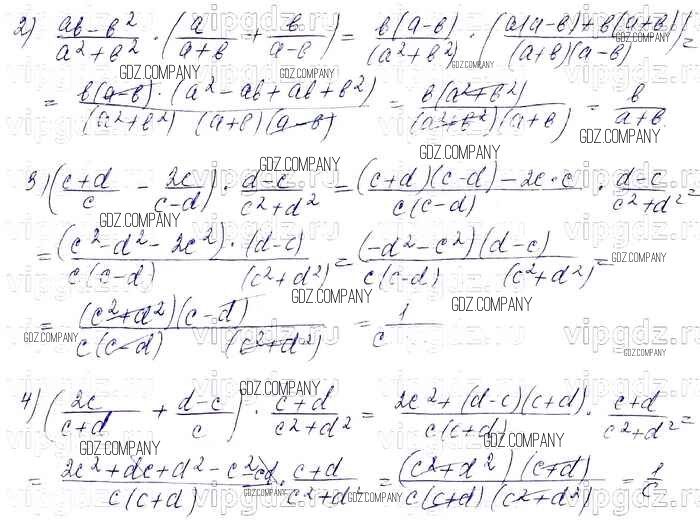 2) (ab-b²)/(a²+b²) · (a/(a+b) + b/(a-b)) = b(a-b)/(a²+b²) · (a(a-b)+b(a+b))/((a+b)(a-b)) =
= b(a-b)·(a²-ab+ab+b²)/((a²+b²)(a+b)(a-b)) = b(a²+b²)/((a²+b²)(a+b)) = b/(a+b)
3) ((c+d)/c - 2c/(c-d)) · (d-c)/(c²+d²) = ((c+d)(c-d)-2c·c)/(c(c-d)) · (d-c)/(c²+d²) =
= (c²-d²-2c²)·(d-c)/(c(c-d)(c²+d²)) = (-d²-c²)(d-c)/(c(c-d)(c²+d²)) =
= (c²+d²)(c-d)/(c(c-d)(c²+d²)) = 1/c
4) (2c/(c+d) + (d-c)/c) · (c+d)/(c²+d²) = (2c²+(d-c)(c+d))/(c(c+d)) · (c+d)/(c²+d²) =
= (2c²+dc+d²-c²-cd)/(c(c+d)) · (c+d)/(c²+d²) = (c²+d²)(c+d)/(c(c+d)(c²+d²)) = 1/c